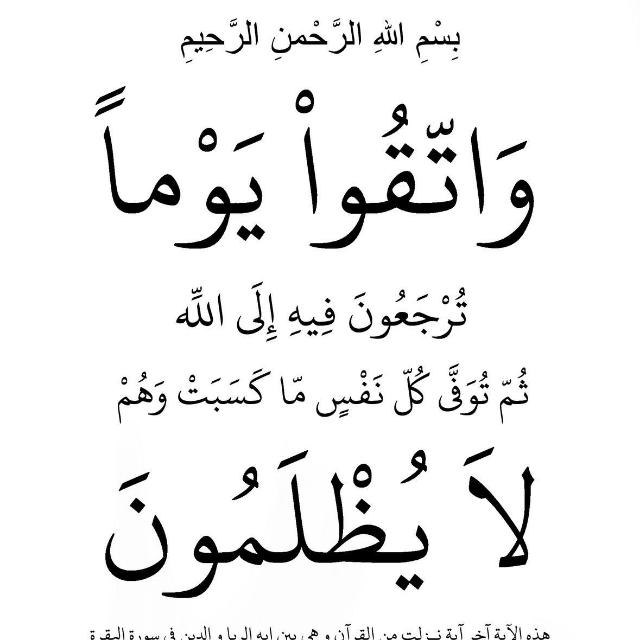 بِسْمِ اللهِ الرَّحْمنِ الرَّحِيمِ
وَاتَّقُواْ يَوْماً
تُرْجَعُونَ فِيهِ إِلَى اللَّهِ
ثُمَّ تُوَفَّى كُلُّ نَفْسٍ مَّا كَسَبَتْ وَهُمْ
لاَ يُظْلَمُونَ
هذه الآية آخر آية نزلت من القرآن و هي بين ايه الربا و الدين في سورة البقرة